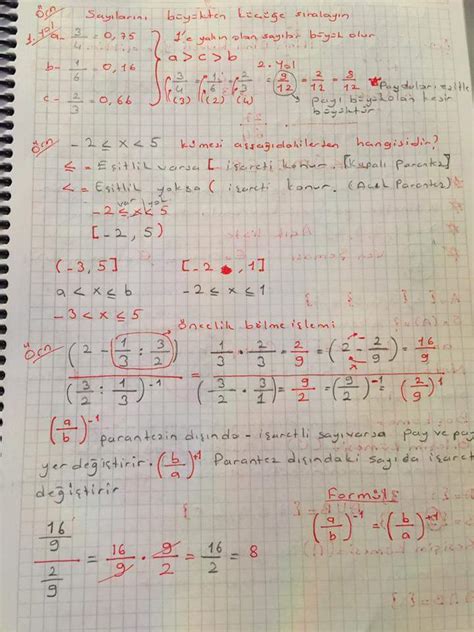 Örn Sayılarını büyükten küçüğe sıralayın
1. yol
a- 3/4 = 0,75
b- 1/6 = 0,16
c- 2/3 = 0,66
1'e yakın olan sayılar büyük olur
a > c > b
2. Yol
3/4 (3) 1/6 (2) 2/3 (4) = 9/12 = 2/12 = 8/12
Paydaları eşitle
payı büyük olan kesir
büyüktür
Örn -2 ≤ x < 5 kümesi aşşağıdakilerden hangisidir?
≤ = Eşitlik varsa [ işareti konur. [Kapalı Parantez]
< = Eşitlik yoksa ( işareti konur. (Açık Parantez)
var yok
-2 ≤ x < 5
[-2, 5)
(-3, 5] [-2, 1]
a < x ≤ b -2 ≤ x ≤ 1
-3 < x ≤ 5
Örn Öncelik bölme işlemi
(2 - 1/3 : 3/2) 1/3 · 2/3 = 2/9 = (2 - 2/9) = 16/9
(3/2 : 1/3)^-1 (3/2 · 3/1) = 9/2 = (9/2)^-1 = (2/9)^1
(a/b)^-1 parantezin dışında - işaretli sayı varsa pay ve pay
yer değiştirir. (b/a)^+1 Parantez dışındaki sayıda işaret
değiştirir
Formülü
(a/b)^-1 = (b/a)^+1
16/9 / 2/9 = 16/9 · 9/2 = 16/2 = 8